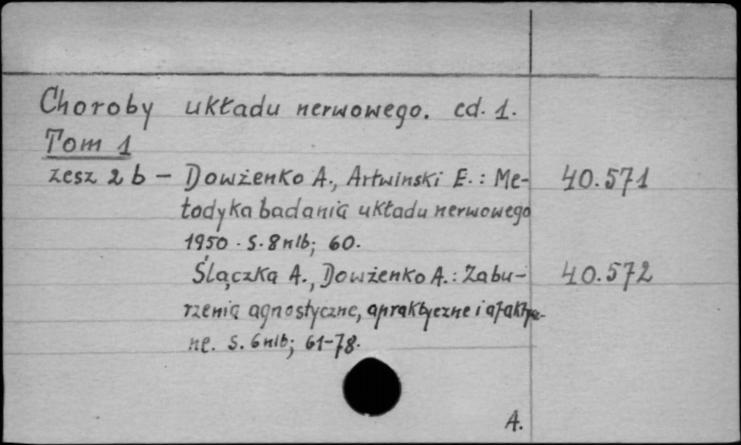 Choroby układu nerwowego. cd. 1.
Tom 1
zesz 2 b - Dowżenko A., Artwinski E.: Me- 40.571
todyka badania układu nerwowego
1950. S. 8 nlb; 60.
Ślączka A., Dowżenko A.: Zabu- 40.572
rzenia agnostyczne, apraktyczne i afatycz-
ne. S. 6 nlb; 61-78.
A.